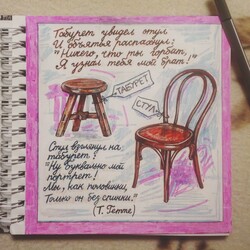 Табурет увидел стул
И объятья распахнул:
"Ничего, что ты горбат,
Я узнал тебя мой брат!"
ТАБУРЕТ
СТУЛ
Стул взглянул на
табурет:
"Ну буквально мой
портрет!
Мы, как половинки,
Только он без спинки."
(Т. Гетте)